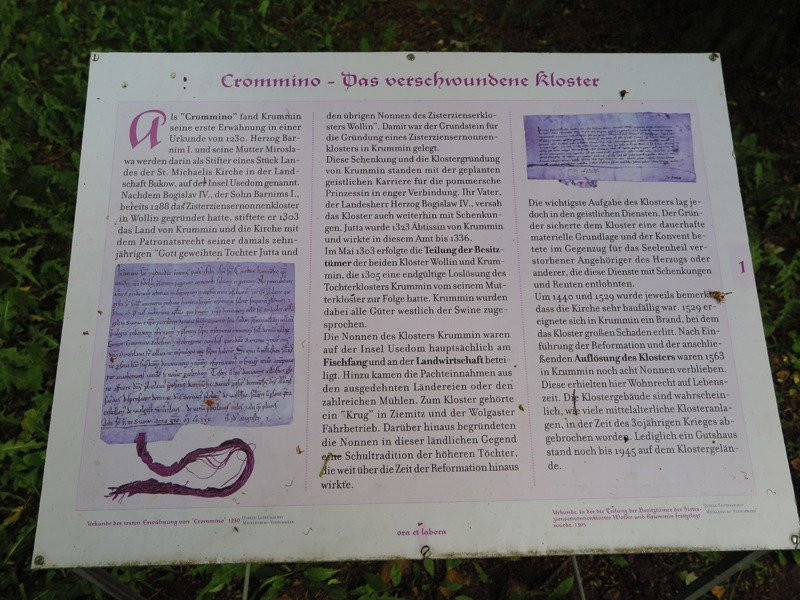 Crommino - Das verschwundene Kloster
Als "Crommino" fand Krummin
seine erste Erwähnung in einer
Urkunde von 1230. Herzog Bar-
nim I. und seine Mutter Mirosla-
wa werden darin als Stifter eines Stück Lan-
des der St. Michaelis Kirche in der Land-
schaft Bukow, auf der Insel Usedom genannt.
Nachdem Bogislav IV., der Sohn Barnims I.,
bereits 1288 das Zisterziensernonnenkloster
in Wollin gegründet hatte, stiftete er 1303
das Land von Krummin und die Kirche mit
dem Patronatsrecht seiner damals zehn-
jährigen "Gott geweihten Tochter Jutta und
den übrigen Nonnen des Zisterzienserklo-
sters Wollin". Damit war der Grundstein für
die Gründung eines Zisterziensernonnen-
klosters in Krummin gelegt.
Diese Schenkung und die Klostergründung
von Krummin standen mit der geplanten
geistlichen Karriere für die pommersche
Prinzessin in enger Verbindung. Ihr Vater,
der Landesherr Herzog Bogislav IV., versah
das Kloster auch weiterhin mit Schenkun-
gen. Jutta wurde 1323 Äbtissin von Krummin
und wirkte in diesem Amt bis 1336.
Im Mai 1303 erfolgte die Teilung der Besitz-
tümer der beiden Kloster Wollin und Krum-
min, die 1305 eine endgültige Loslösung des
Tochterklosters Krummin vom seinem Mut-
terkloster zur Folge hatte. Krummin wurden
dabei alle Güter westlich der Swine zuge-
sprochen.
Die Nonnen des Klosters Krummin waren
auf der Insel Usedom hauptsächlich am
Fischfang und an der Landwirtschaft betei-
ligt. Hinzu kamen die Pachteinnahmen aus
den ausgedehnten Ländereien oder den
zahlreichen Mühlen. Zum Kloster gehörte
ein "Krug" in Ziemitz und der Wolgaster
Fährbetrieb. Darüber hinaus begründeten
die Nonnen in dieser ländlichen Gegend
eine Schultradition der höheren Töchter,
die weit über die Zeit der Reformation hinaus
wirkte.
Die wichtigste Aufgabe des Klosters lag je-
doch in den geistlichen Diensten. Der Grün-
der sicherte dem Kloster eine dauerhafte
materielle Grundlage und der Konvent be-
tete im Gegenzug für das Seelenheil ver-
storbener Angehöriger des Herzogs oder
anderer, die diese Dienste mit Schenkungen
und Renten entlohnten.
Um 1440 und 1529 wurde jeweils bemerkt,
dass die Kirche sehr baufällig war. 1529 er-
eignete sich in Krummin ein Brand, bei dem
das Kloster großen Schaden erlitt. Nach Ein-
führung der Reformation und der anschlie-
ßenden Auflösung des Klosters waren 1563
in Krummin noch acht Nonnen verblieben.
Diese erhielten hier Wohnrecht auf Lebens-
zeit. Die Klostergebäude sind wahrschein-
lich, wie viele mittelalterliche Klosteranla-
gen, in der Zeit des 30jährigen Krieges ab-
gebrochen worden. Lediglich ein Gutshaus
stand noch bis 1945 auf dem Klostergelän-
de.
1
Urkunde der ersten Erwähnung von "Crommino" 1230
ora et labora
Urkunde, in der die Teilung der Besitztümer der Zister-
ziensernonnenklöster Wollin und Krummin festgelegt
wurde, 1305